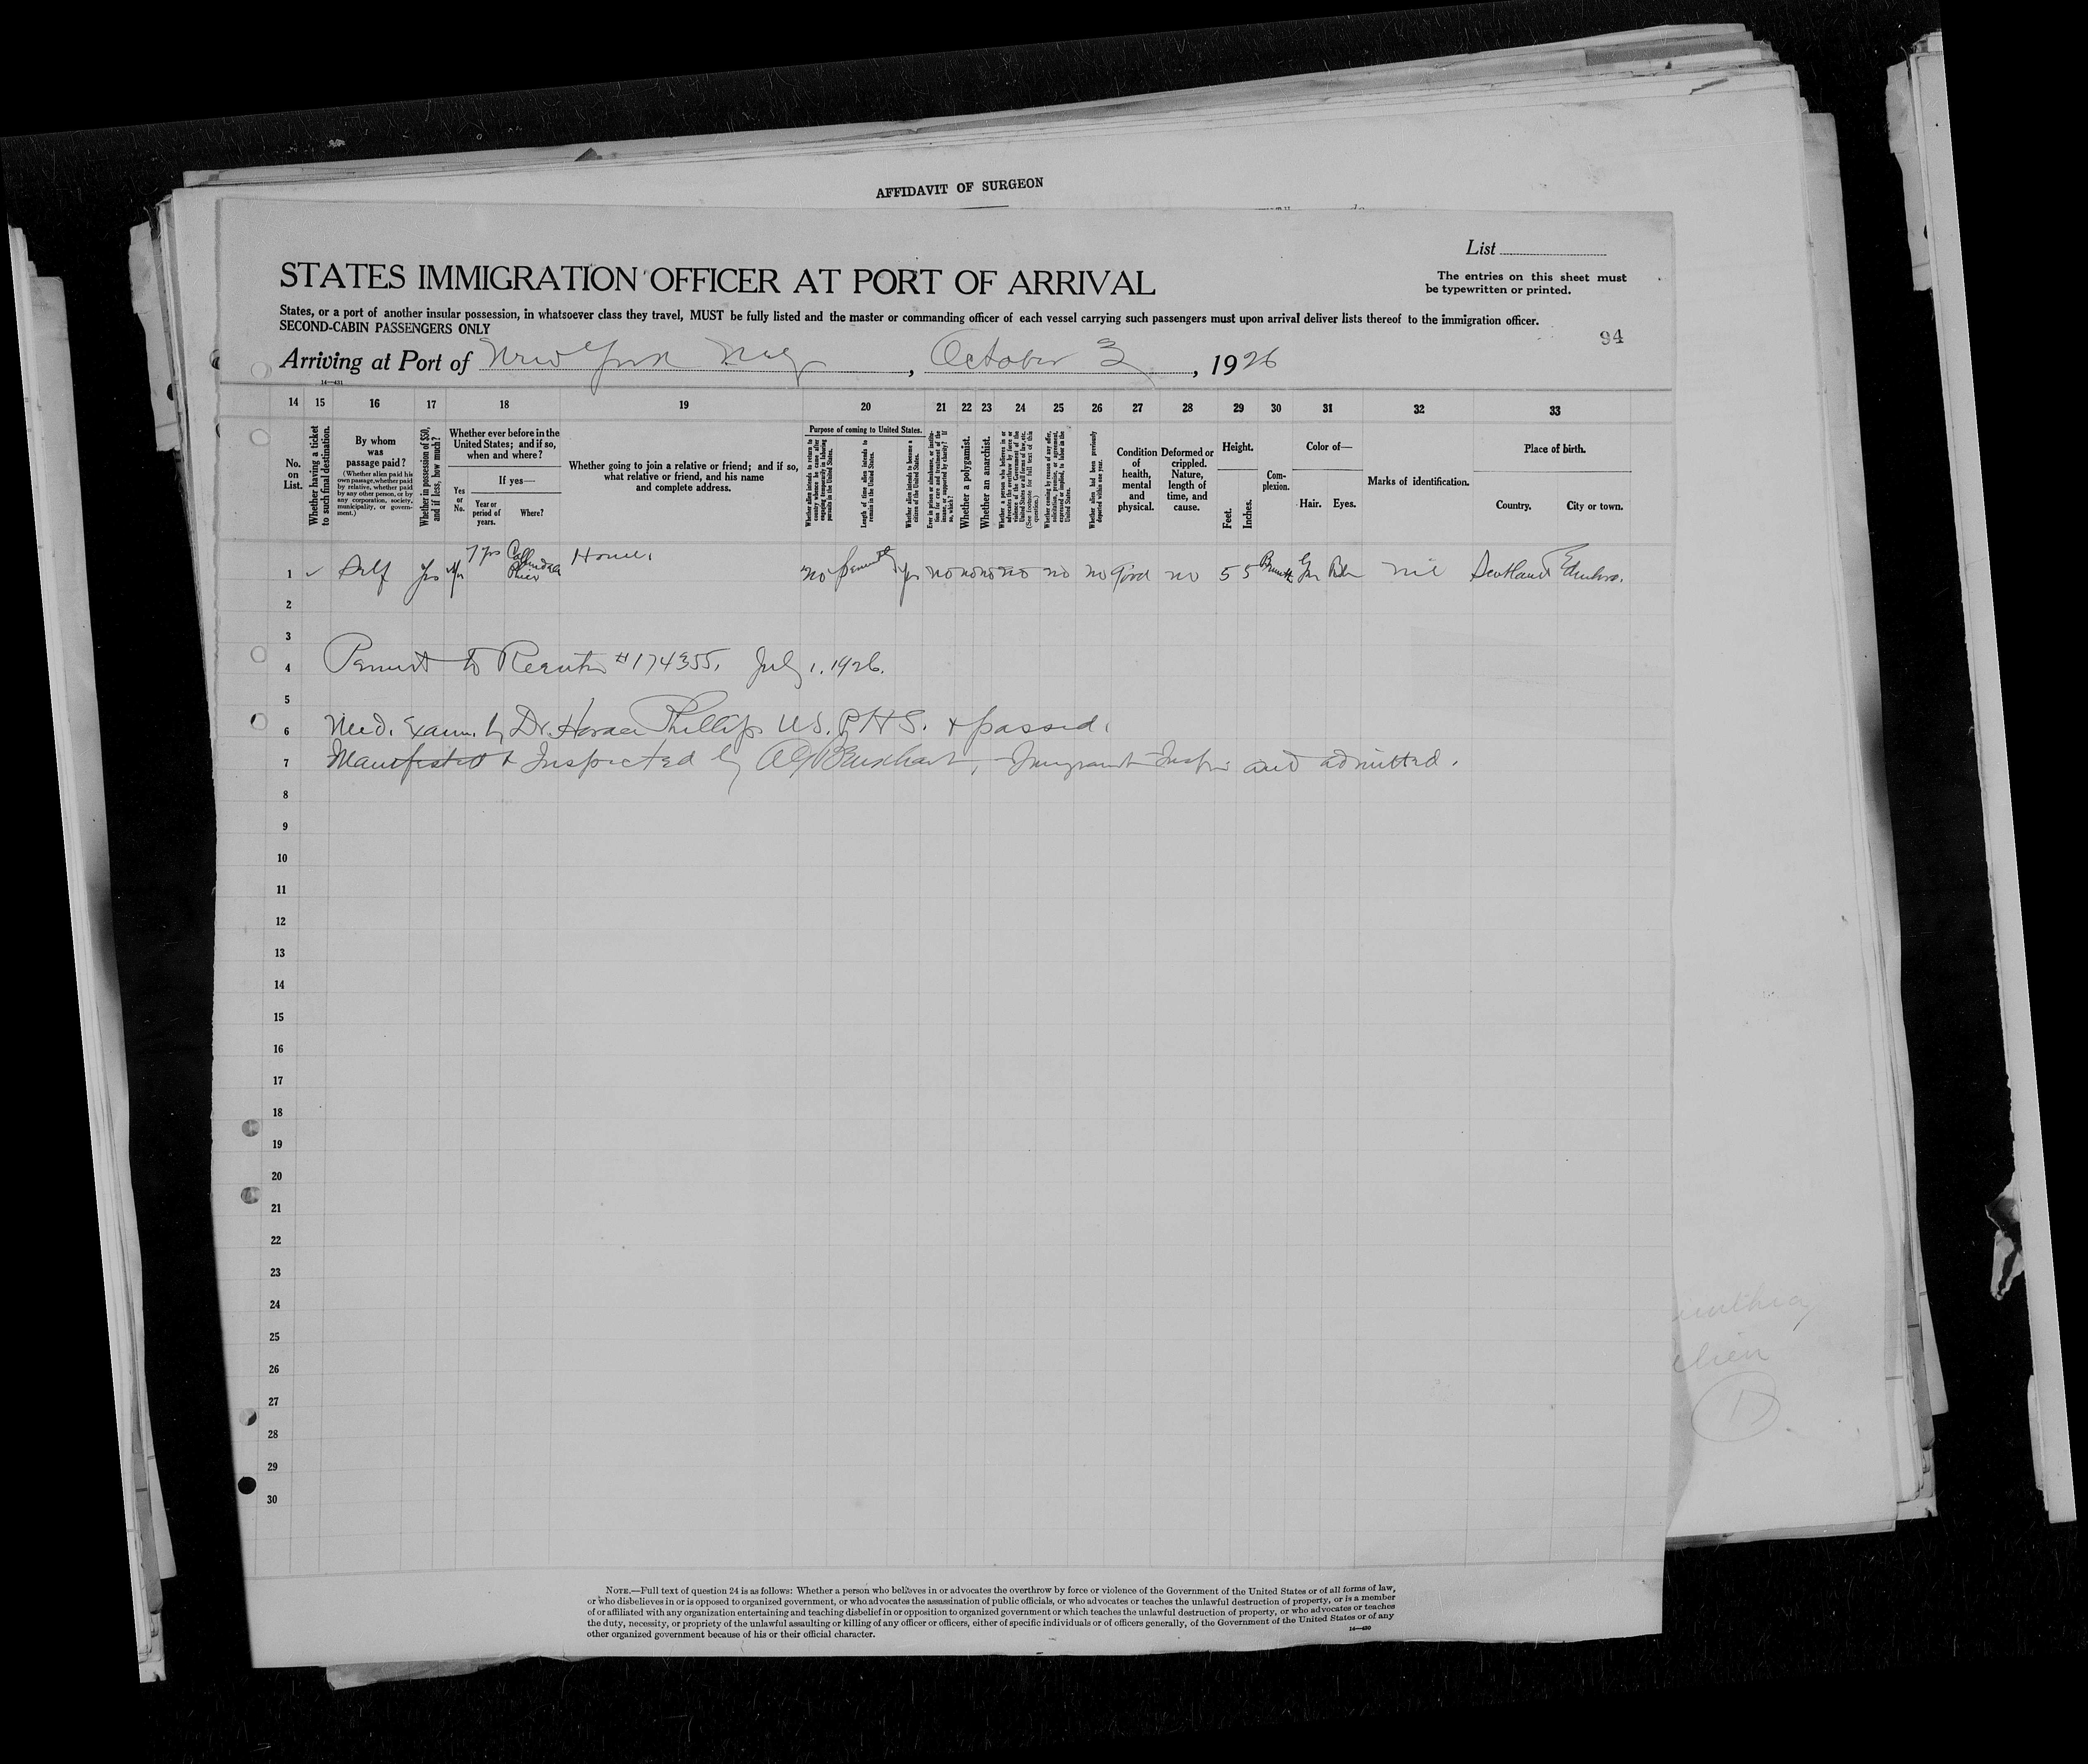 AFFIDAVIT OF SURGEON
List
STATES IMMIGRATION OFFICER AT PORT OF ARRIVAL
The entries on this sheet must
be typewritten or printed.
States, or a port of another insular possession, in whatsoever class they travel, MUST be fully listed and the master or commanding officer of each vessel carrying such passengers must upon arrival deliver lists thereof to the immigration officer.
SECOND-CABIN PASSENGERS ONLY
94
Arriving at Port of New York, October 3, 1926
14—431
14 15 16 17 18 19 20 21 22 23 24 25 26 27 28 29 30 31 32 33
No. on List.
Whether having a ticket to such final destination.
By whom was passage paid?
(Whether alien paid his own passage, whether paid by relative, whether paid by any other person, or by any corporation, society, municipality, or government.)
Whether in possession of $50, and if less, how much?
Whether ever before in the United States; and if so, when and where?
If yes—
Yes or No.
Year or period of years.
Where?
Whether going to join a relative or friend; and if so, what relative or friend, and his name and complete address.
Purpose of coming to United States.
Whether alien intends to return to country whence he came after engaging temporarily in laboring pursuits in the United States.
Length of time alien intends to remain in the United States.
Whether alien intends to become a citizen of the United States.
Ever in prison or almshouse, or institution for care and treatment of the insane, or supported by charity? If so, which?
Whether a polygamist.
Whether an anarchist.
Whether a person who believes in or advocates the overthrow by force or violence of the Government of the United States or all forms of law, etc. (See footnote for full text of this question.)
Whether coming by reason of any offer, solicitation, promise, or agreement, expressed or implied, to labor in the United States.
Whether alien had been previously deported within one year.
Condition of health, mental and physical.
Deformed or crippled. Nature, length of time, and cause.
Height.
Feet. Inches.
Complexion.
Color of—
Hair. Eyes.
Marks of identification.
Place of birth.
Country. City or town.
1 ✓ Self yes yes 7 yrs Home. no yes no no no no no no good no 5 5 nil Scotland
2
3
4 Permit to Reenter #174355, July 1, 1926.
5
6 Med. Exam. by Dr. Horace Phillips U.S.P.H.S. & passed.
7 Manifested & Inspected by Immigrant Inspr. and admitted.
8
9
10
11
12
13
14
15
16
17
18
19
20
21
22
23
24
25
26
27
28
29
30
alien
1
NOTE.—Full text of question 24 is as follows: Whether a person who believes in or advocates the overthrow by force or violence of the Government of the United States or of all forms of law,
or who disbelieves in or is opposed to organized government, or who advocates the assassination of public officials, or who advocates or teaches the unlawful destruction of property, or is a member
of or affiliated with any organization entertaining and teaching disbelief in or opposition to organized government or which teaches the unlawful destruction of property, or who advocates or teaches
the duty, necessity, or propriety of the unlawful assaulting or killing of any officer or officers, either of specific individuals or of officers generally, of the Government of the United States or of any
other organized government because of his or their official character.
14—430